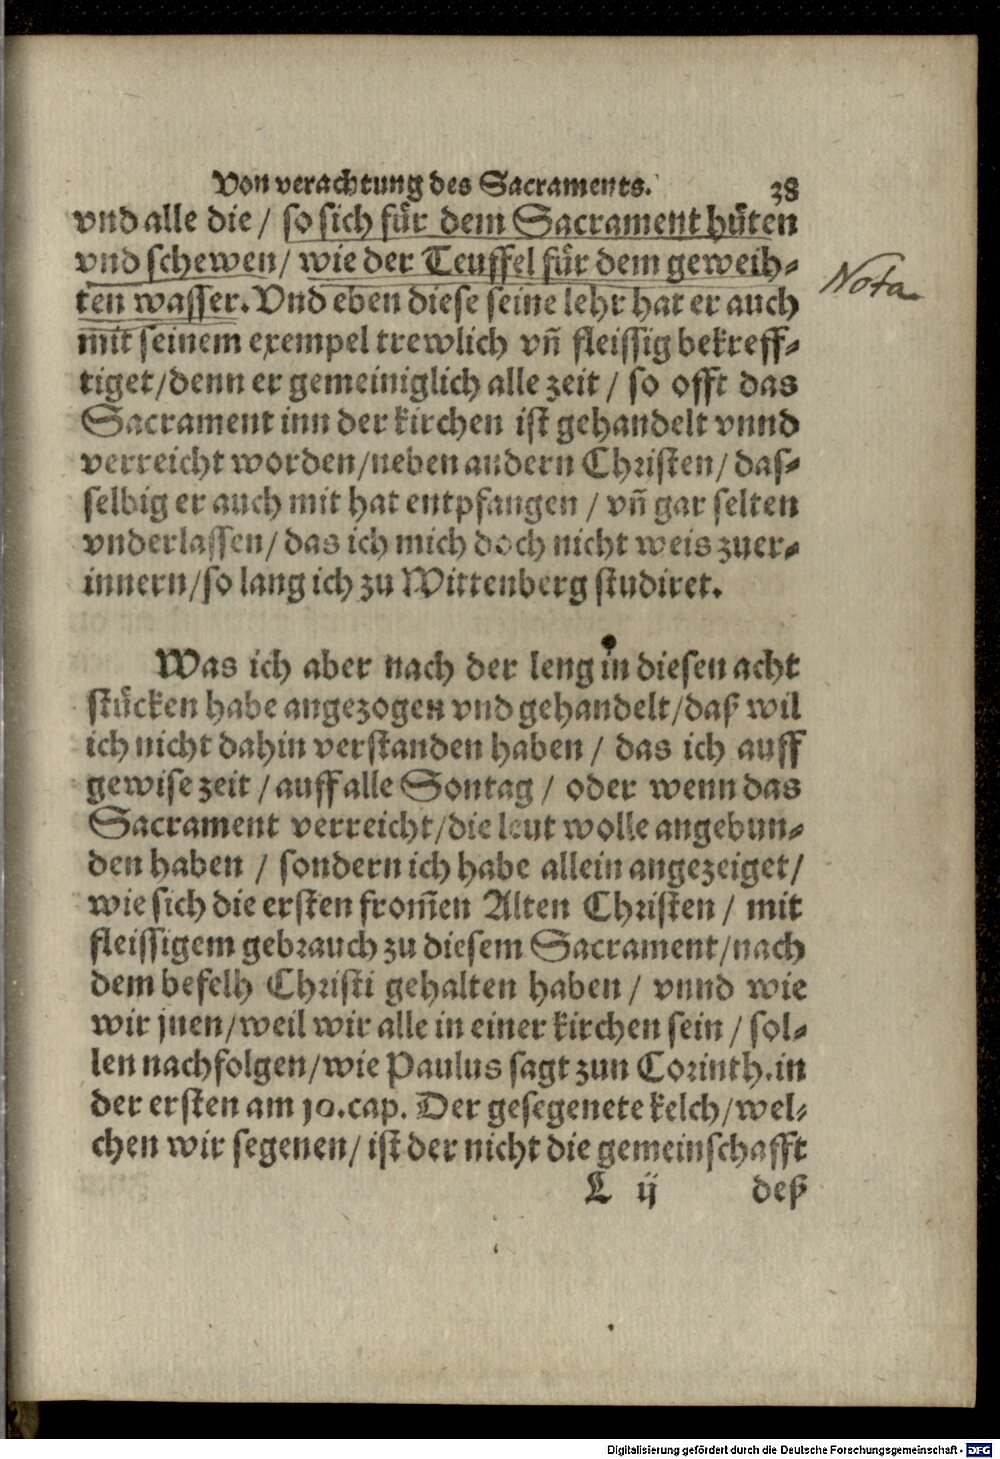 Von verachtung des Sacraments. 38
vnd alle die / so sich fuͤr dem Sacrament huͤten
vnd schewen / wie der Teuffel fuͤr dem geweih⸗
ten wasser. Vnd eben diese seine lehr hat er auch
Nota
mit seinem exempel trewlich vñ fleissig bekreff⸗
tiget / denn er gemeiniglich alle zeit / so offt das
Sacrament inn der kirchen ist gehandelt vnnd
verreicht worden / neben andern Christen / das⸗
selbig er auch mit hat entpfangen / vñ gar selten
vnderlassen / das ich mich doch nicht weis zuer⸗
innern / so lang ich zu Wittenberg studiret.
Was ich aber nach der leng in diesen acht
stuͤcken habe angezogen vnd gehandelt / daß wil
ich nicht dahin verstanden haben / das ich auff
gewise zeit / auff alle Sontag / oder wenn das
Sacrament verreicht / die leut wolle angebun⸗
den haben / sondern ich habe allein angezeiget /
wie sich die ersten from̃en Alten Christen / mit
fleissigem gebrauch zu diesem Sacrament / nach
dem befelh Christi gehalten haben / vnnd wie
wir jnen / weil wir alle in einer kirchen sein / sol⸗
len nachfolgen / wie Paulus sagt zun Corinth. in
der ersten am 10. cap. Der gesegenete kelch / wel⸗
chen wir segenen / ist der nicht die gemeinschafft
L ij deß
Digitalisierung gefördert durch die Deutsche Forschungsgemeinschaft - DFG